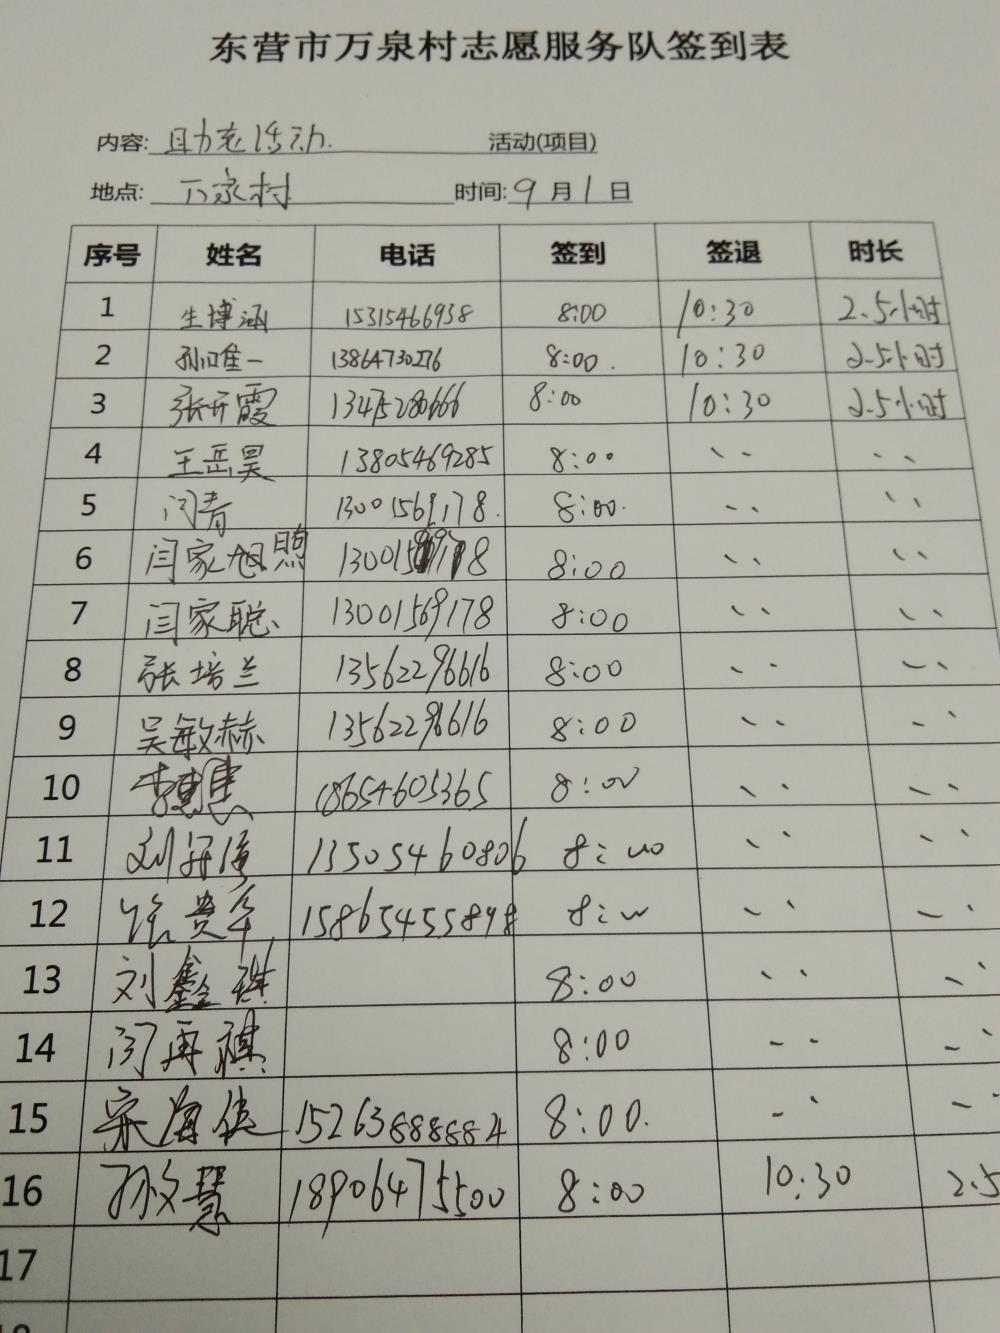 东营市万泉村志愿服务队签到表
内容: 助老活动 活动(项目)
地点: 万泉村 时间: 9月1日
序号 姓名 电话 签到 签退 时长
1 生博涵 15315466938 8:00 10:30 2.5小时
2 孙唯一 13864730276 8:00 10:30 2.5小时
3 张开霞 13475280666 8:00 10:30 2.5小时
4 王岳昊 13805469285 8:00 、、 、、
5 闫青 13001569178 8:00 、、 、、
6 闫家旭煦 8:00 、、 、、
7 闫家聪 13001569178 8:00 、、 、、
8 张培兰 13562296616 8:00 、、 、、
9 吴敏赫 13562296616 8:00 、、 、、
10 18654605365 8:00 、、 、、
11 刘 13505460806 8:00 、、 、、
12 15865455898 8:00 、、 、、
13 刘鑫琪 8:00 、、 、、
14 闫再祺 8:00 、、 、、
15 宋海 15263888884 8:00 、、 、、
16 孙文慧 18906475500 8:00 10:30 2.5
17